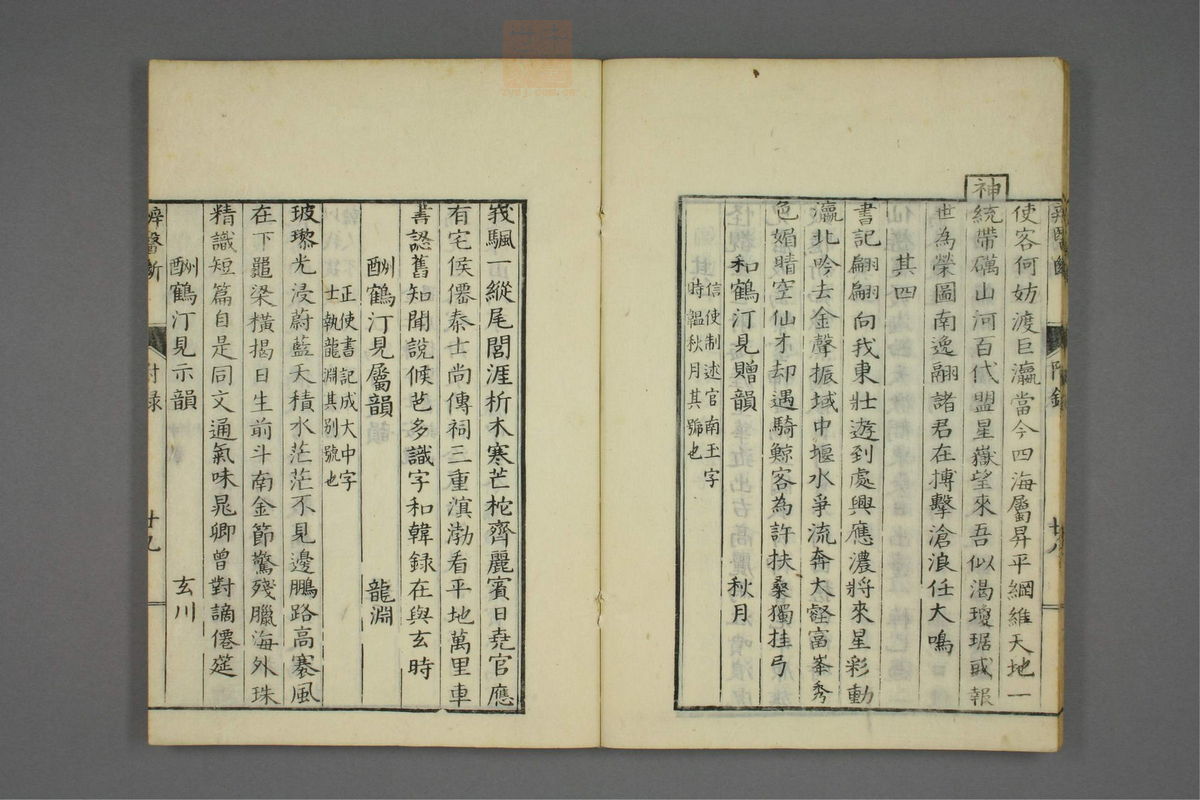 使客何妨渡巨瀛當今四海屬昇平綱維天地一
神
統帶礪山河百代盟星嶽望來吾似渴瓊琚或報
世為榮圖南逸翮諸君在搏擊滄浪任大鳴
其四
書記翩翩向我東壯遊到處興應濃將來星彩動
瀛北吟去金聲振域中堰水爭流奔大壑富峯秀
色媚晴空仙才却遇騎鯨客為許扶桑獨挂弓
和鶴汀見贈韻
秋月
信使制述官南玉字
時韞秋月其號也
我颿一縱尾閭涯析木寒芒柁齊麗賓日堯官應
有宅候僊秦士尚傳祠三重滇渤看平地萬里車
書認舊知聞說候芭多識字和韓録在與玄時
酬鶴汀見屬韻
龍淵
正使書記成大中字
士執龍淵其別號也
玻瓈光浸蔚藍天積水茫茫不見邊鵬路高褰風
在下鼉梁橫揭日生前斗南金節驚殘臘海外珠
精識短篇自是同文通氣味晁卿曾對謫僊筵
酬鶴汀見示韻
玄川
醫斷
附録
廿九